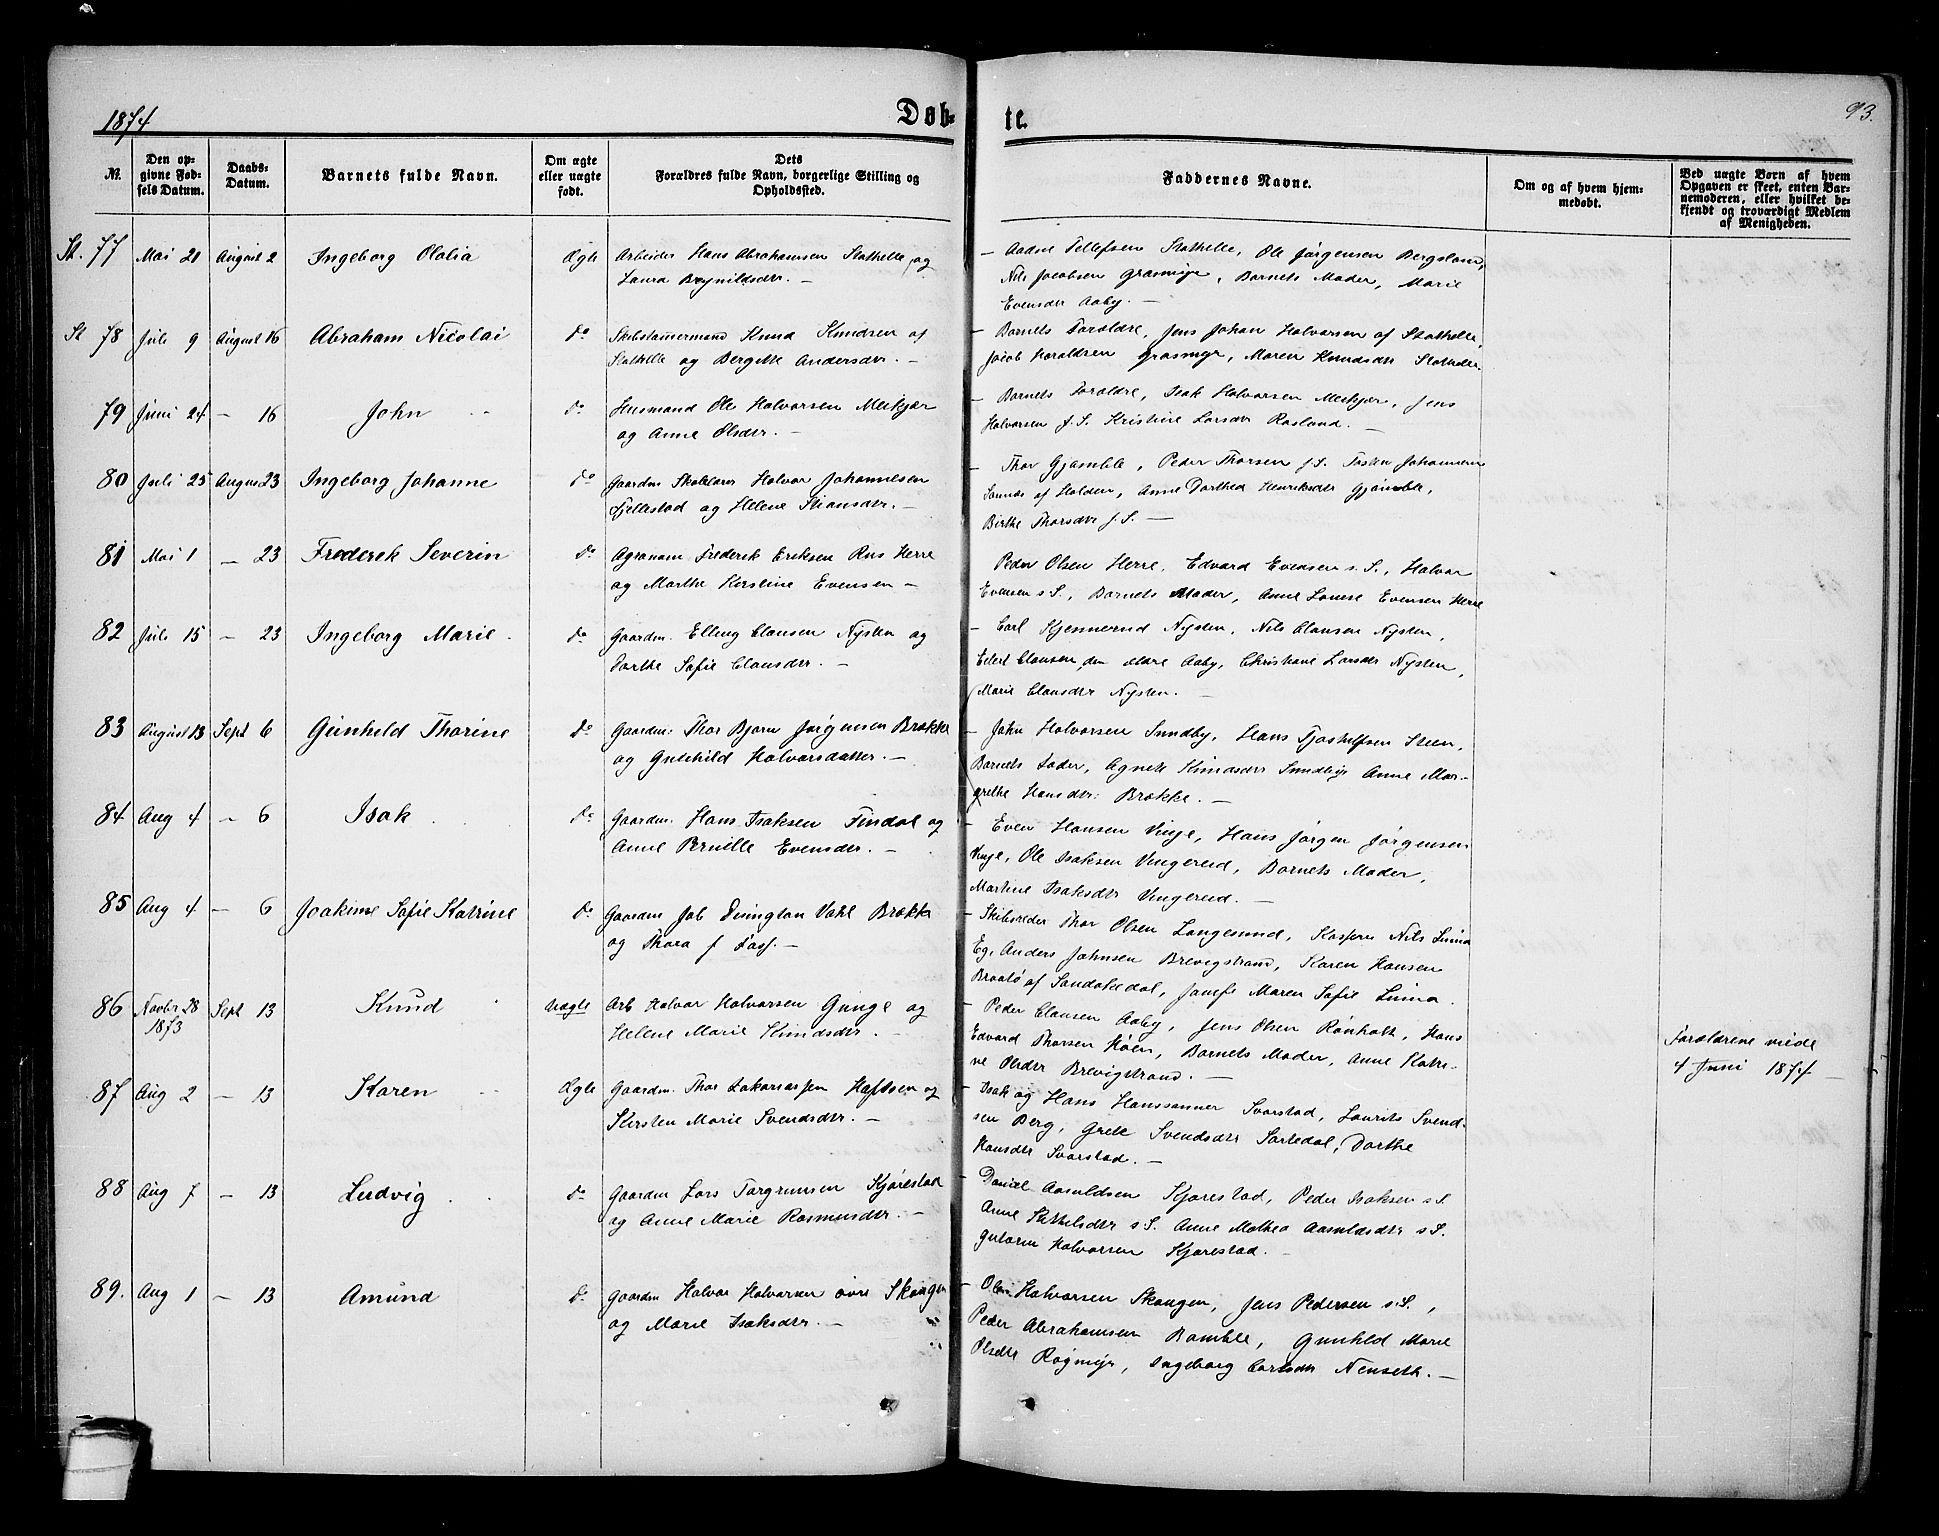 1874
Døb-
te.
93.
№.
Den op-
givne Fød-
sels Datum.
Daabs-
Datum.
Barnets fulde Navn.
Om ægte
eller uægte
født.
Dets
Forældres fulde Navn, borgerlige Stilling og
Opholdssted.
Faddernes Navne.
Om og af hvem hjem-
medøbt.
Ved uægte Børn af hvem
Opgaven er skeet, enten Bar-
nemoderen, eller hvilket be-
kjendt og troværdigt Medlem
af Menigheden.
St. 77 Mai 21 August 2 Ingeborg Olalia Ægte Arbeider Hans Abrahamsen Stathelle og
Laura Brynildsdtr. —
— Aadne Tellefsen Stathelle, Ole Jørgensen Bergsland,
Nils Jacobsen Grasmyr, Barnets Moder, Marie
Evensdtr Aaby. —
St 78 Juli 9 August 16 Abraham Nicolai do Skibstømmermand Knud Knudsen af
Stathelle og Bergitte Andersdtr. —
— Barnets Forældre, Jens Johan Halvorsen af Stathelle,
Jacob Haraldsen Grasmyr, Maren Knudsdtr Stathelle.
79 Juni 24 — 16 John do Husmand Ole Halvorsen Melkjær
og Anne Olsdtr. —
— Barnets Forældre, Isak Halvorsen Melkjær, Jens
Halvorsen f. S. Kristine Larsdtr Rosland. —
80 Juli 25 August 23 Ingeborg Johanne do Gaardm Skolelærer Halvor Johannesen
Fjellestad og Helene Stiansdtr. —
— Thor Gjømble, Peder Thorsen f. S. Tosten Johannesen
Sannes af Holden, Anne Dorthea Henriksdtr Gjømble,
Birthe Thorsdtr f. S. —
81 Mai 1 — 23 Frederek Severin do Agronom Frederik Eriksen Rus Herre
og Marthe Kirstine Evensen —
Peder Olsen Herre, Edvard Evensen s. S., Halvor
Evensen s S., Barnets Moder, Anne Lovise Evensen Herre
82 Juli 15 — 23 Ingeborg Marie do Gaardm. Elling Clausen Nysten og
Dorthe Sofie Clausdtr. —
— Carl Kjennerud Nysten, Nils Clausen Nysten,
Eilert Clausen den ældre Aaby, Christiane Larsdtr Nysten,
Marie Clausdtr Nysten. —
83 August 13 Sept 6 Gunhild Thorine do Gaardm: Thor Bjørn Jørgensen Brække
og Gunhild Halvorsdatter. —
— John Halvorsen Sundby, Hans Tjostulfsen Steen,
Barnets Fader, Agnete Knudsdtr Sundby, Anne Mar-
grethe Hansdtr: Brække. —
84 Aug 4 — 6 Isak do Gaardm. Hans Isaksen Findal og
Anne Pernille Evensdtr. —
— Even Hansen Vinje, Hans Jørgen Jørgensen
Vinje, Ole Isaksen Vingereid, Barnets Moder,
Martine Isaksdtr Vingereid. —
85 Aug 4 — 6 Joakime Sofie Katrine do Gaardm Job Dysingtan Vahl Brække
og Thora f —
— Skibsreder Thor Olsen Langesund, Kasserer Nils
Eg, Anders Johnsen Brevigstrand, Karen Hansen
Braatø af Sandøkedal, Jomfr Maren Sofie
86 Novbr 28
1873 Sept 13 Knud Uægte Arb Halvor Halvorsen Gunge og
Helene Marie Knudsdtr. —
— Peder Clausen Aaby, Jens Olsen Rønholt, Hans
Edvard Thorsen Høen, Barnets Moder, Anne Katri-
ne Olsdtr Brevigstrand. —
Forældrene viede
4 Juni 1874 —
87 Aug 2 — 13 Karen Ægte Gaardm. Thor Zakariassen Haftsen og
Kirsten Marie Svendsdtr. —
— Isak og Hans Hanssønner Svarstad, Laurits Svend-
sen Berg, Grete Svendsdtr Sortedal, Dorthe
Hansdtr Svarstad. —
88 Aug 7 — 13 Ludvig do Gaardm Lars Torgrimsen Kjørestad
og Anne Marie Rasmusdtr. —
— Daniel Aanuldsen Kjørestad, Peder Isaksen s S.
Anne Kittilsdtr s S. Anne Mathea Aanuldsdtr s S.
Gutorm Halvorsen Kjørestad. —
89. Aug 1 — 13 Amund do Gaardm Halvor Halvorsen øvre Skougen
og Marie Isaksdtr. —
— Olav Halvorsen Skougen, Jens Pedersen s. S.,
Peder Abrahamsen Bamble, Gunhild Marie
Olsdtr Rogmyr, Ingeborg Carlsdtr Nenseth. —